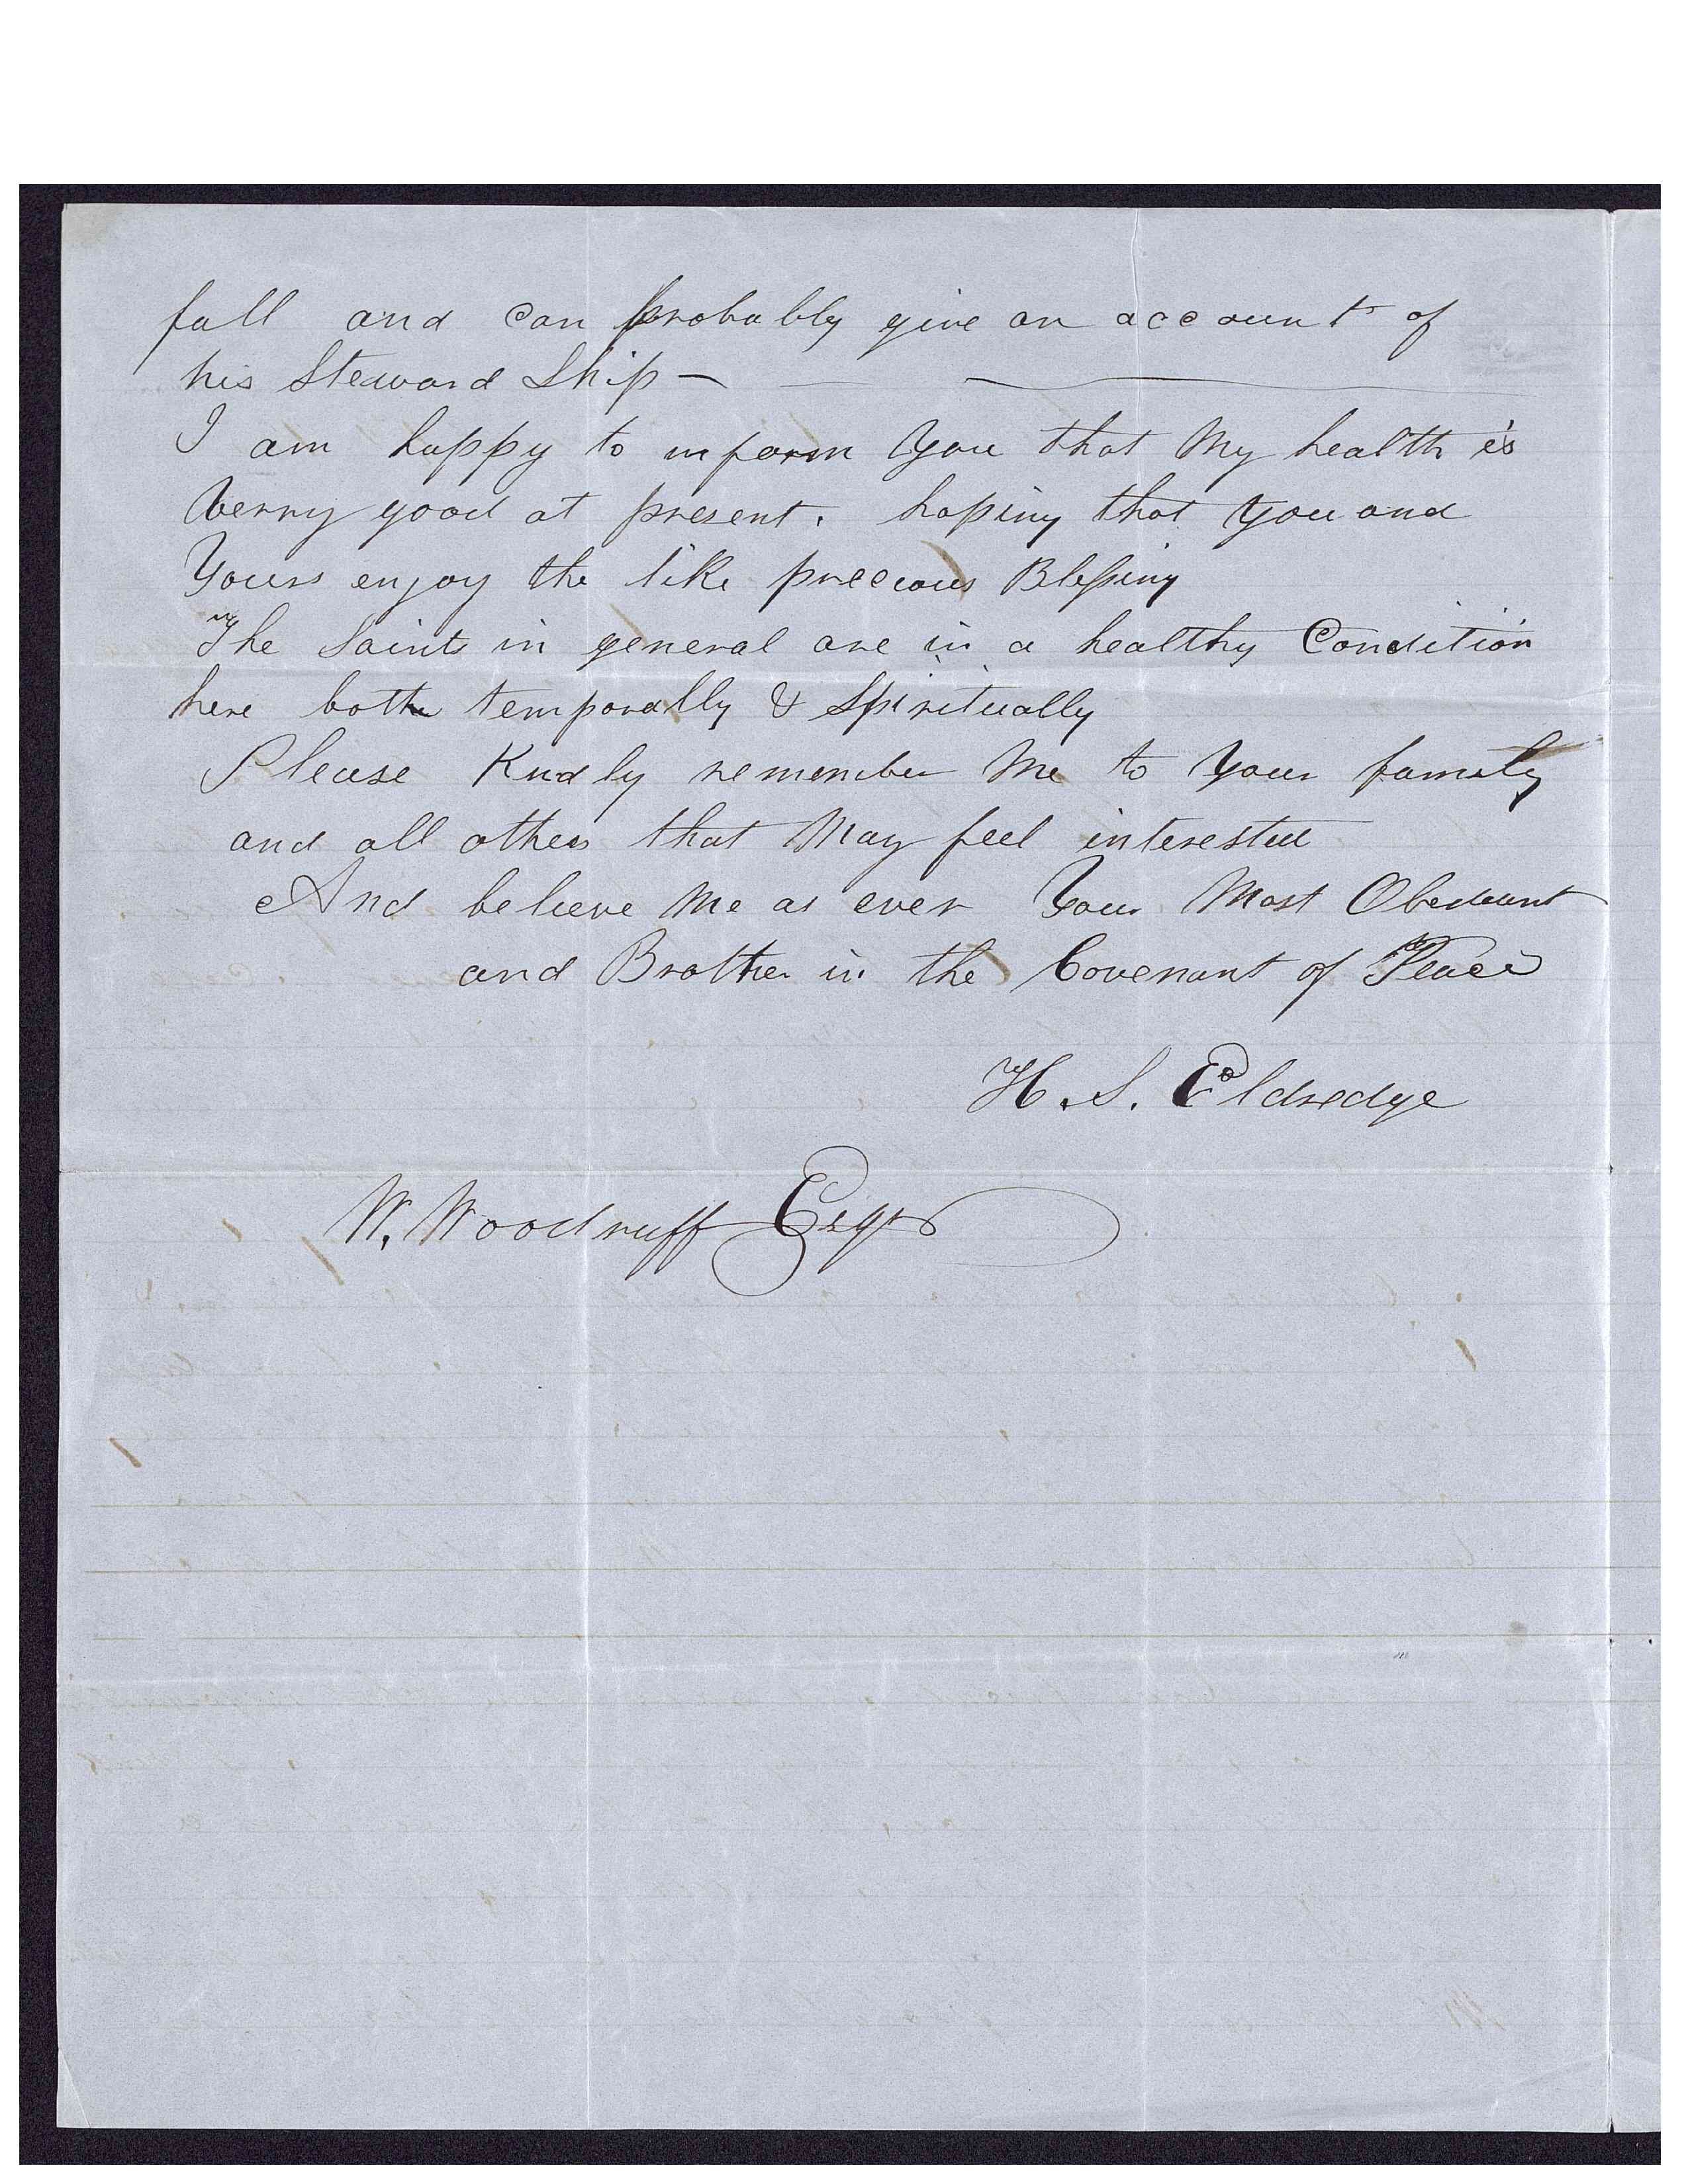 fall and can probably give an account of
his Steward Ship —
I am happy to inform you that My health is
verry good at present. hoping that you and
Yours enjoy the like precious Blessing
The Saints in general are in a healthy Condition
here both temporally & Spiritually
Please Kndly remember Me to Your family
and all others that May feel interested
And believe Me as ever Your Most Obedient
and Brother in the Covenant of Peace
H. S. Eldredge
W. Woodruff Esqr